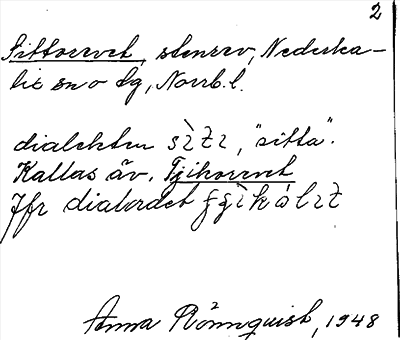 2
Sittorrvet, stenrev, Nederka-
lix sn o tg, Norrb. l.
dialekten "sitta".
Kallas äv. Tjikorrvet
Jfr dialordet
Anna Rönnquist, 1948